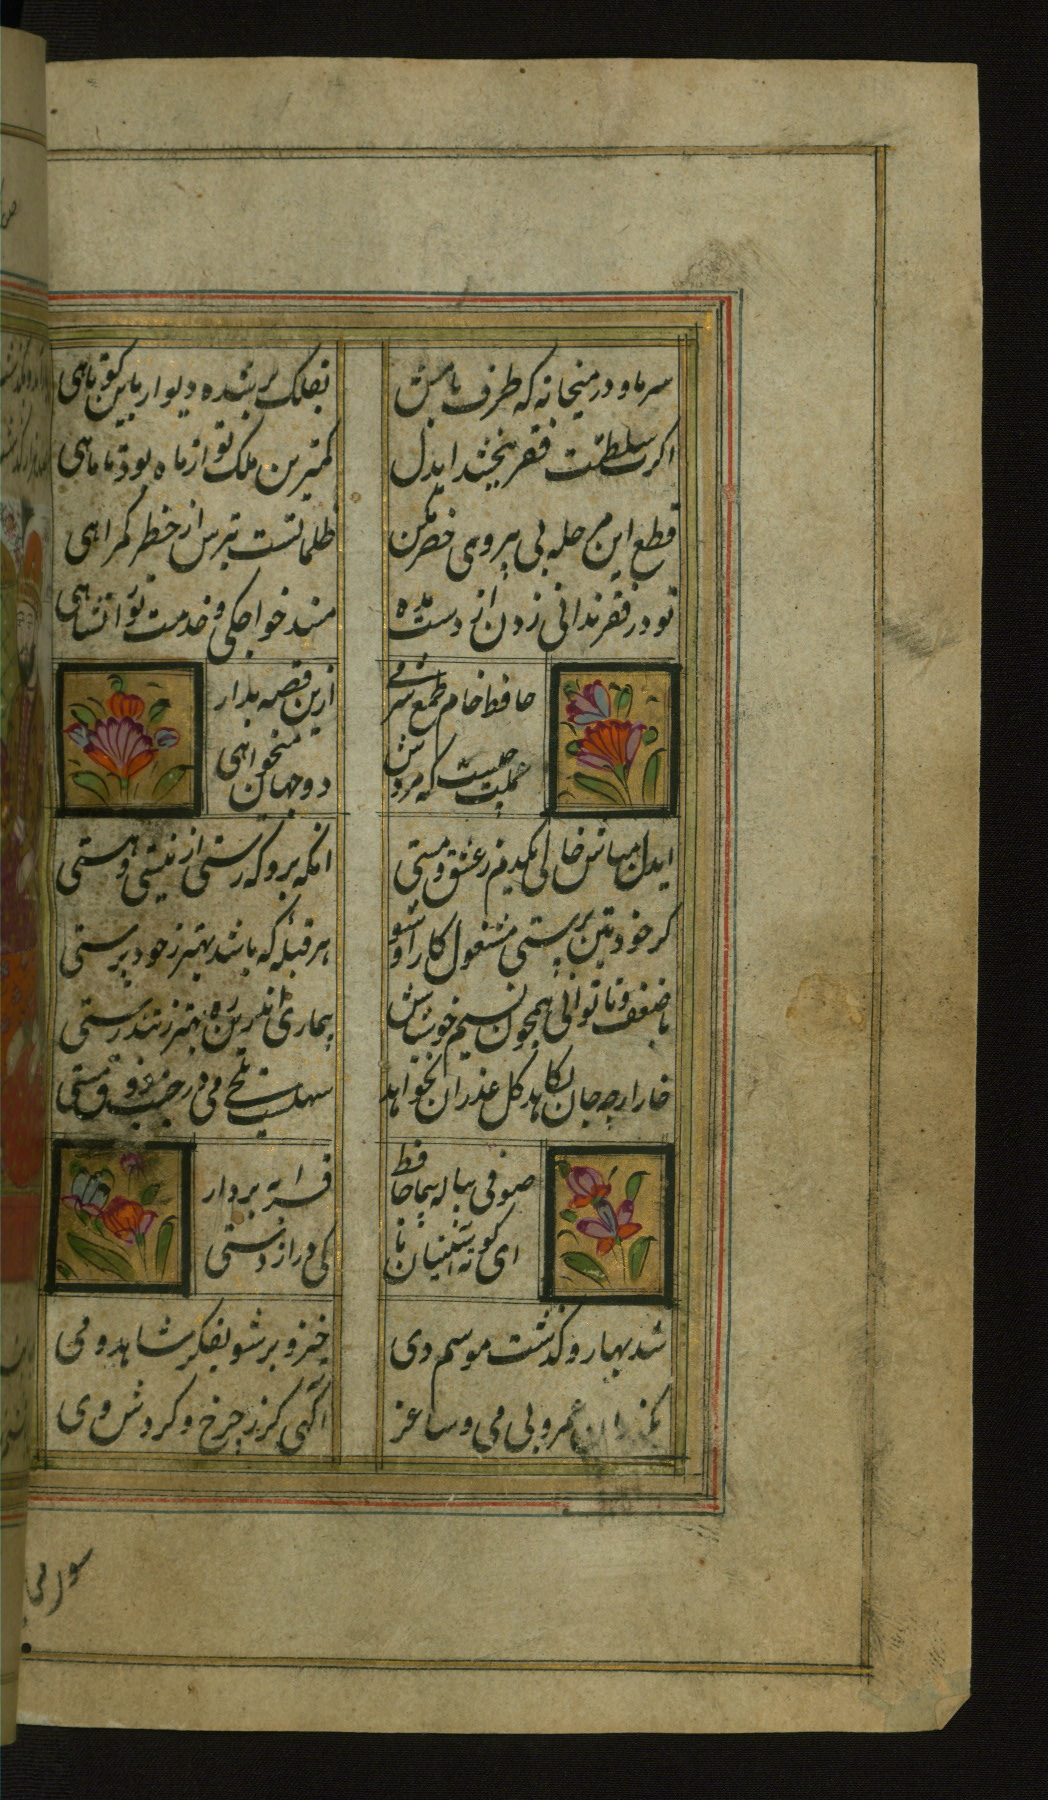 سر ما و در میخانه که طرف بامش
بفلک بر شده دیوار باین کوتاهی
اگرت سلطنت فقر ببخشد ایدل
کمترین ملک تو از ماه بود تا ماهی
قطع این مرحله بی پیروی خضر مکن
ظلماتست بترس از خطر گمراهی
تو در فقر ندانی زدن از دست مده
مسند خواجگی و خدمت تورانشاهی
حافظ خام طمع شرمی
ازین قصه بدار
عملت چیست که مزدش
دو جهان میخواهی
ایدل مباش خالی یکدم ز عشق و مستی
انگه برو که رستی از نیستی و هستی
گر خود بتی پرستی مشغول کار او شو
هر قبله که باشد بهتر ز خود پرستی
با ضعف و ناتوانی همچون نسیم خوش باش
بیماری اندرین ره بهتر ز تندرستی
خار ارچه جان بکاهد گل عذر آن بخواهد
سهلست تلخی می در جنب ذوق مستی
صوفی پیاله پیما حافظ
قرابه بردار
ای کوته آستینان تا
کی دراز دستی
شد بهار و گذشت موسم دی
خیز و بر شو بفکر شاهد و می
مگذران عمر و بی می و ساغر
آگهی گر ز چرخ و گردش وی